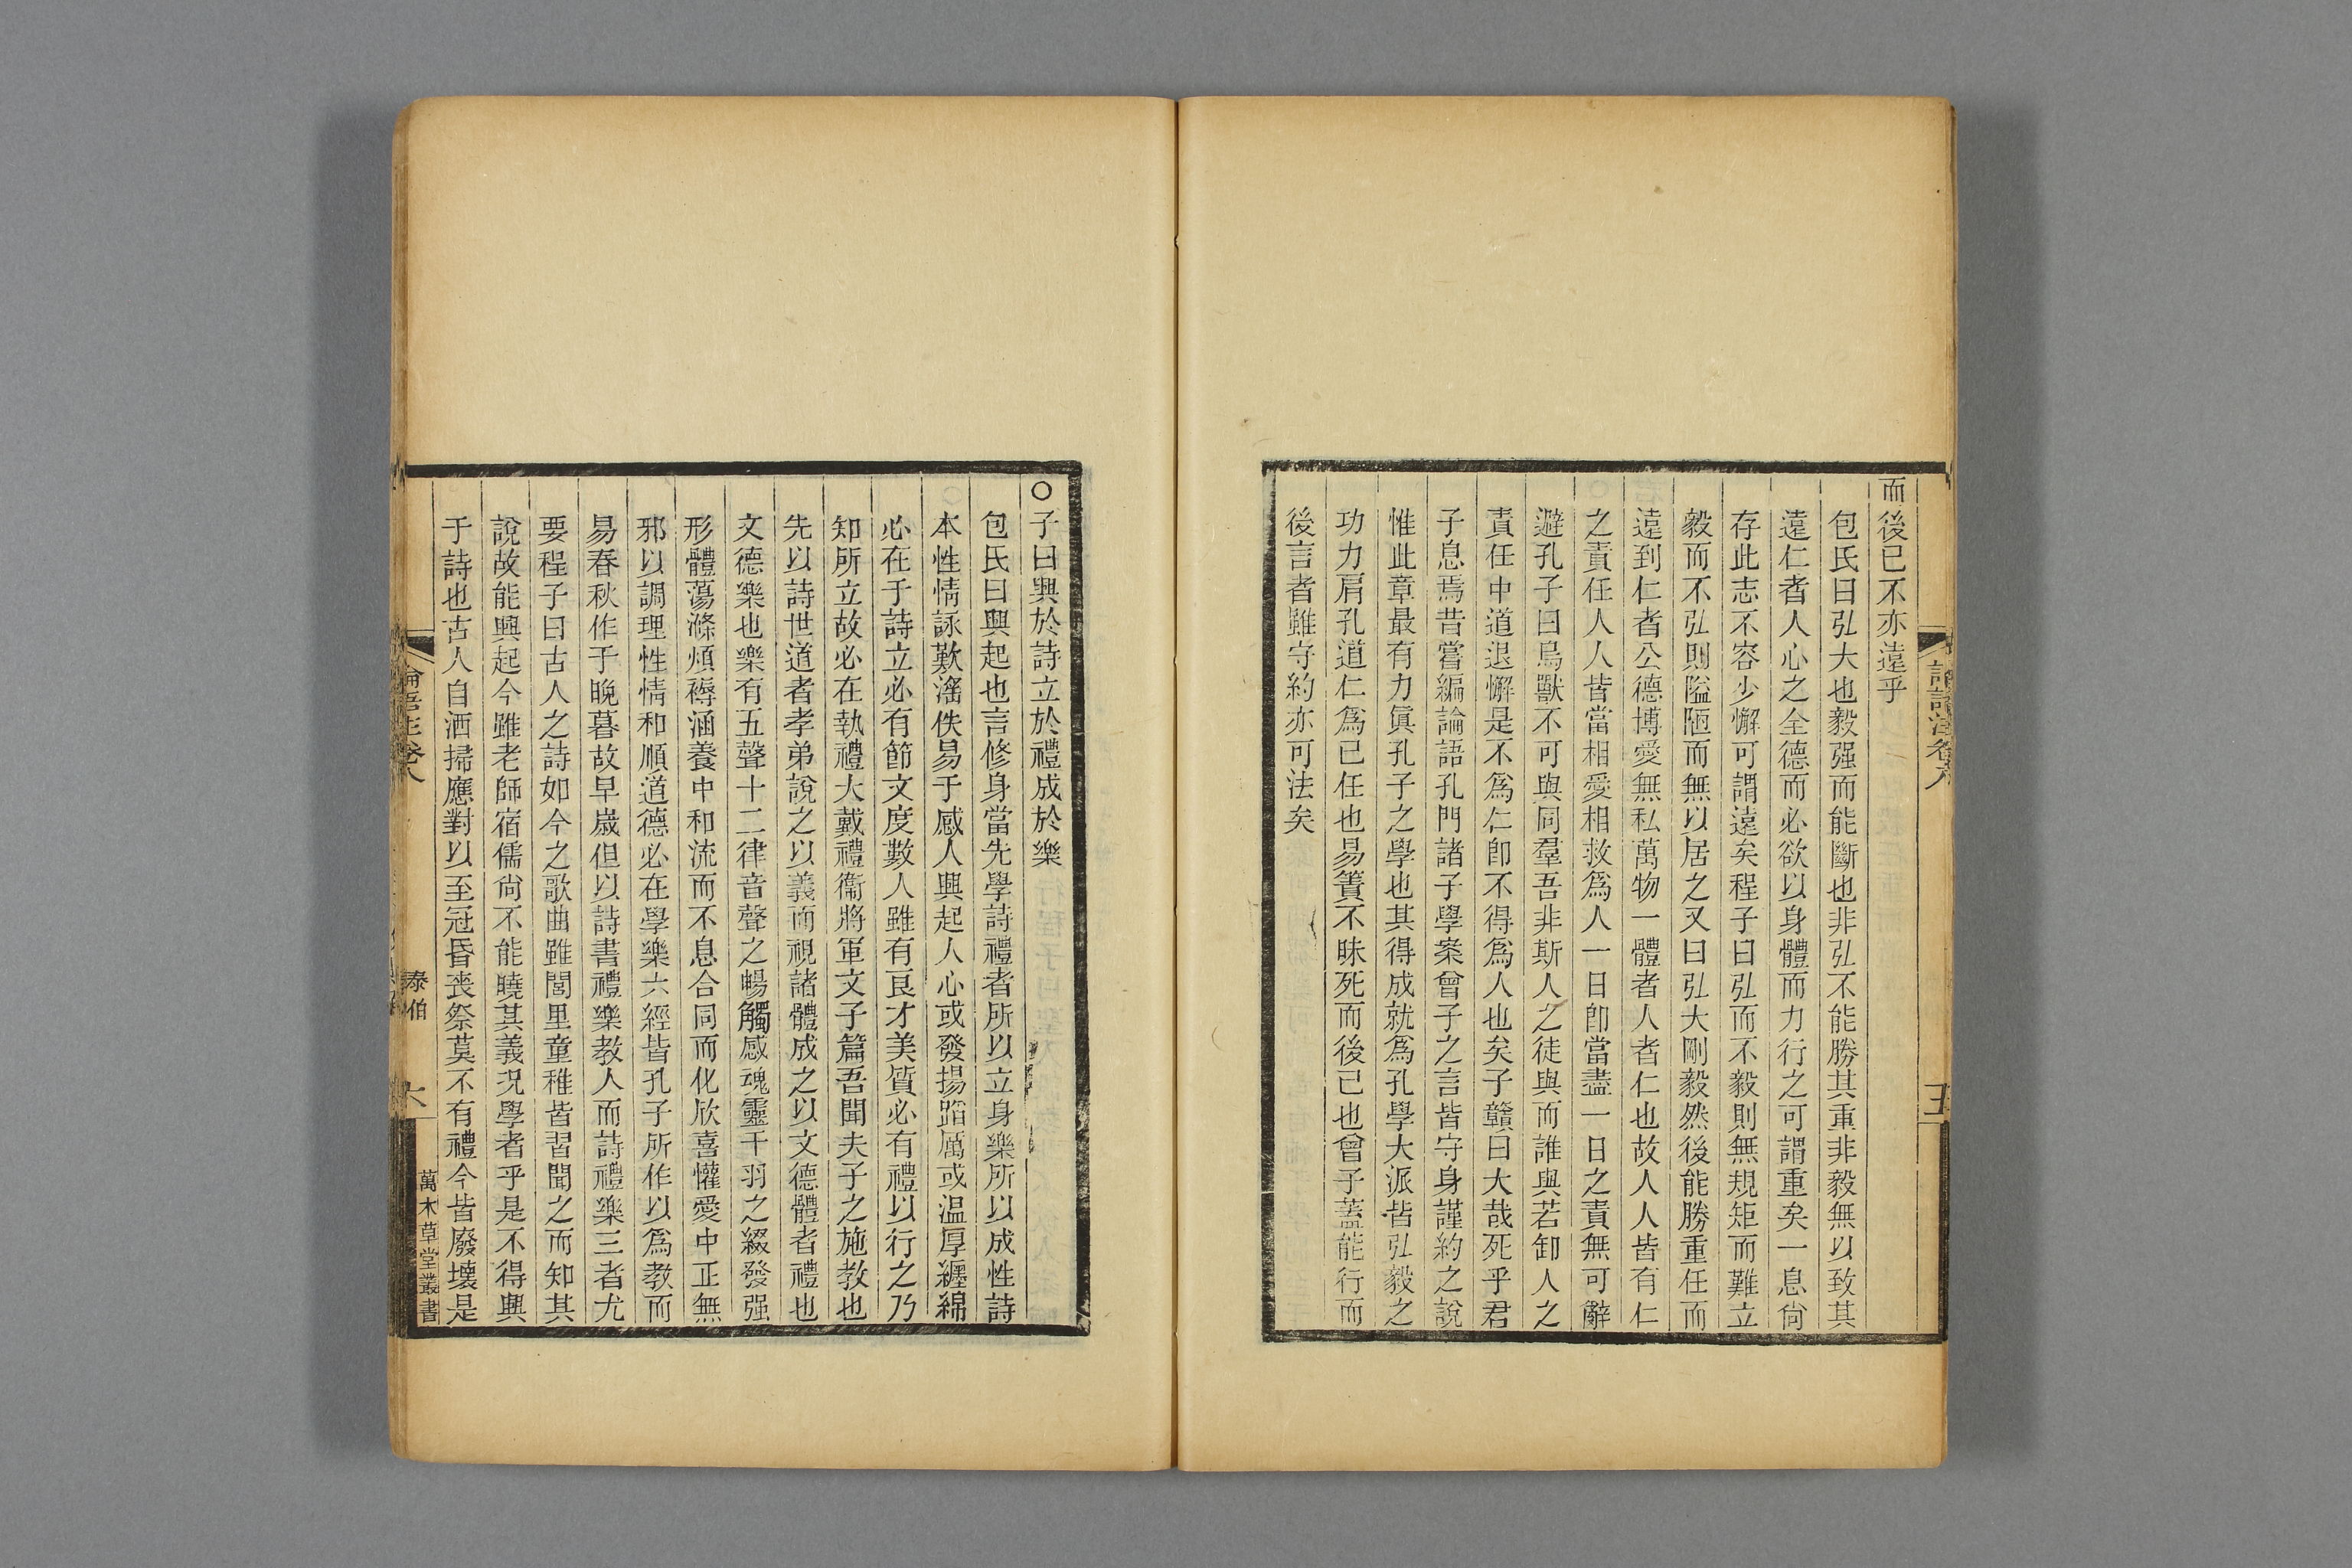 論語注卷八
五
而後已不亦遠乎
包氏曰弘大也毅强而能斷也非弘不能勝其重非毅無以致其
遠仁者人心之全德而必欲以身體而力行之可謂重矣一息尙
存此志不容少懈可謂遠矣程子曰弘而不毅則無規矩而難立
毅而不弘則隘陋而無以居之又曰弘大剛毅然後能勝重任而
遠到仁者公德博愛無私萬物一體者人者仁也故人人皆有仁
之責任人人皆當相愛相救爲人一日卽當盡一日之責無可辭
避孔子曰鳥獸不可與同羣吾非斯人之徒與而誰與若卸人之
責任中道退懈是不爲仁卽不得爲人也矣子贛曰大哉死乎君
子息焉昔嘗編論語孔門諸子學案曾子之言皆守身謹約之說
惟此章最有力眞孔子之學也其得成就爲孔學大派皆弘毅之
功力肩孔道仁爲己任也易簀不昧死而後已也曾子蓋能行而
後言者雖守約亦可法矣
○子曰興於詩立於禮成於樂
包氏曰興起也言修身當先學詩禮者所以立身樂所以成性詩
本性情詠歎滛佚易于感人興起人心或發揚蹈厲或温厚纏綿
必在于詩立必有節文度數人雖有良才美質必有禮以行之乃
知所立故必在執禮大戴禮衞將軍文子篇吾聞夫子之施教也
先以詩世道者孝弟說之以義而視諸體成之以文德體者禮也
文德樂也樂有五聲十二律音聲之暢觸感魂靈干羽之綴發强
形體蕩滌煩褥涵養中和流而不息合同而化欣喜懽愛中正無
邪以調理性情和順道德必在學樂六經皆孔子所作以爲教而
易春秋作于晚暮故早歲但以詩書禮樂教人而詩禮樂三者尤
要程子曰古人之詩如今之歌曲雖閭里童稚皆習聞之而知其
說故能興起今雖老師宿儒尙不能曉其義況學者乎是不得興
于詩也古人自洒掃應對以至冠昏喪祭莫不有禮今皆廢壞是
論語注卷八
泰伯
六
萬木草堂叢書